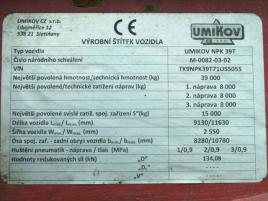 UMIKOV CZ s.r.o.
Liboměřice 12
538 21 Slatiňany
CE
UMIKOV
VÝROBNÍ ŠTÍTEK VOZIDLA
Typ vozidla UMIKOV NPK 39T
Číslo národního schválení M-0082-03-02
VIN TK9NPK39T71US5055
Největší povolená hmotnost/technická hmotnost (kg) 39 000
Největší povolené/technické zatížení náprav (kg) 1. náprava 8 000
2. náprava 8 000
3. náprava 8 000
Největší povolené svislé zatíž. spoj. zařízení S"(kg) 15 000
Délka vozidla Lmin/Lmax (mm) 9130/11630
Šířka vozidla Wmin/Wmax (mm) 2 550
Osa spoj. zař. - zadní obrys vozidla bmin/bmax (mm) 8280/10780
Huštění pneumatik - náprava / tlak (MPa) 1/0,9 2/0,9 3/0,9
Hodnoty redukovaných sil (kN) „D" 134,08